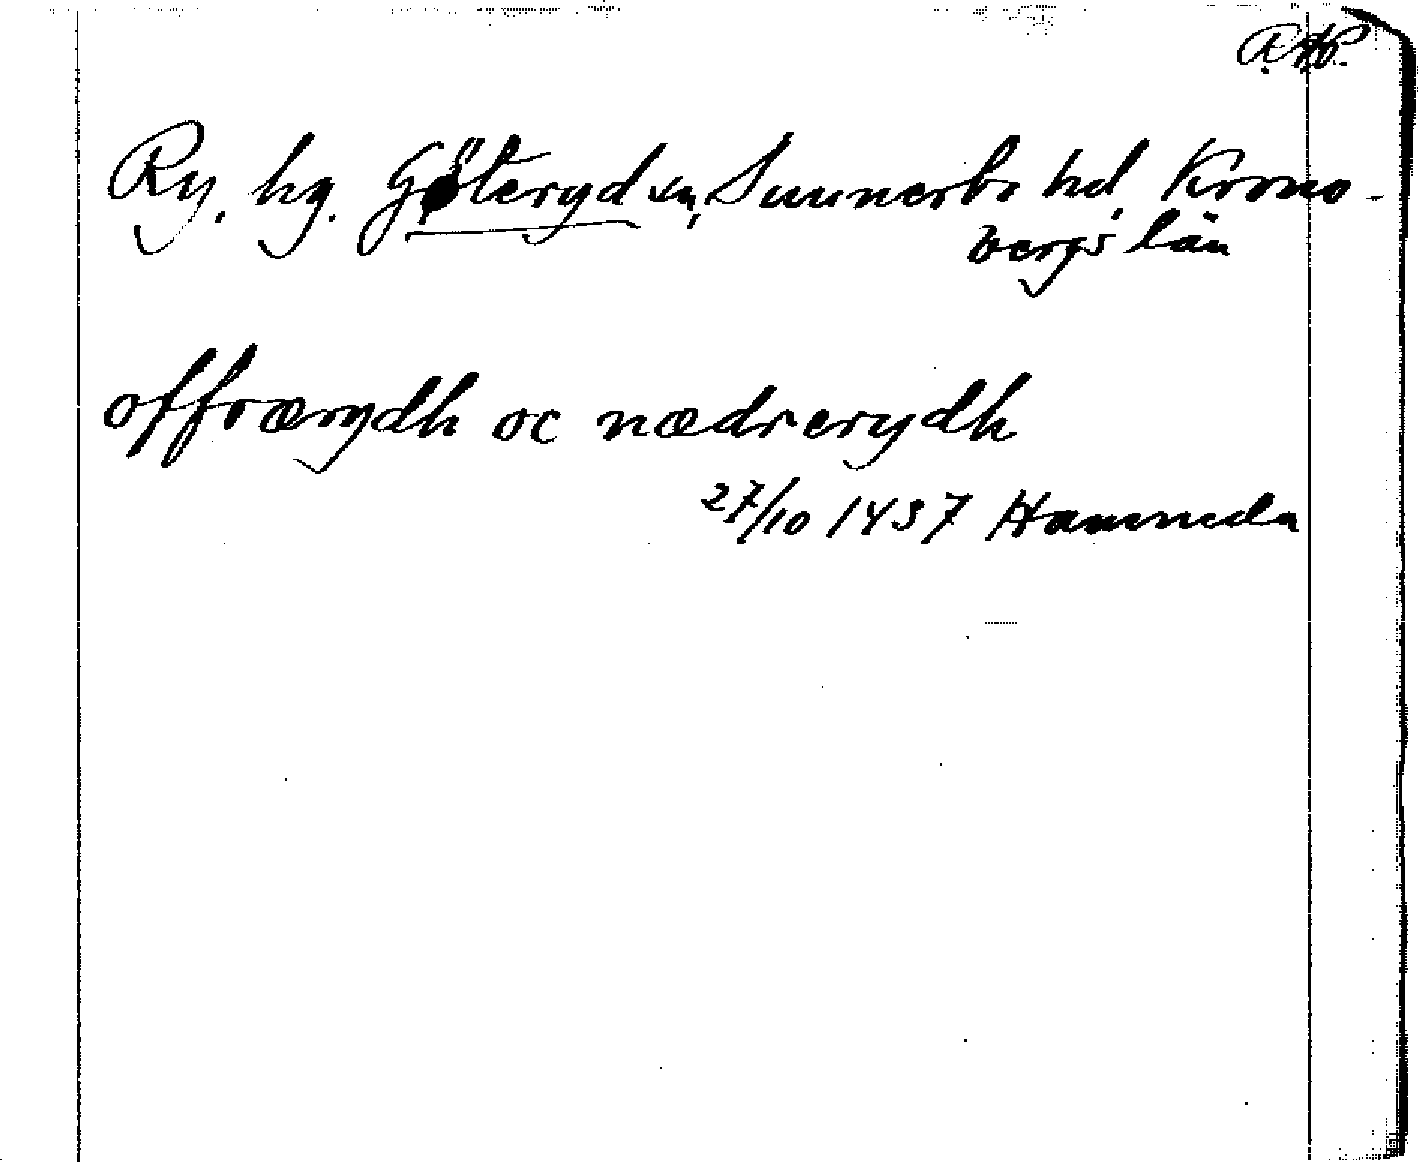 Ry, hg. Göteryd sn, Sunnerbo hd, Krono-
bergs län
offrærydh oc nædrerydh
27/10 1437 Hamneda